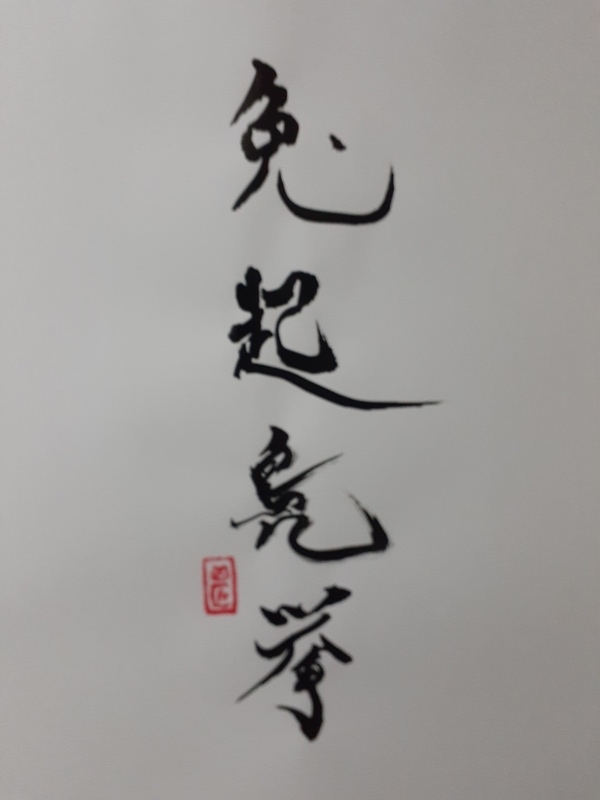 兔起鳧舉